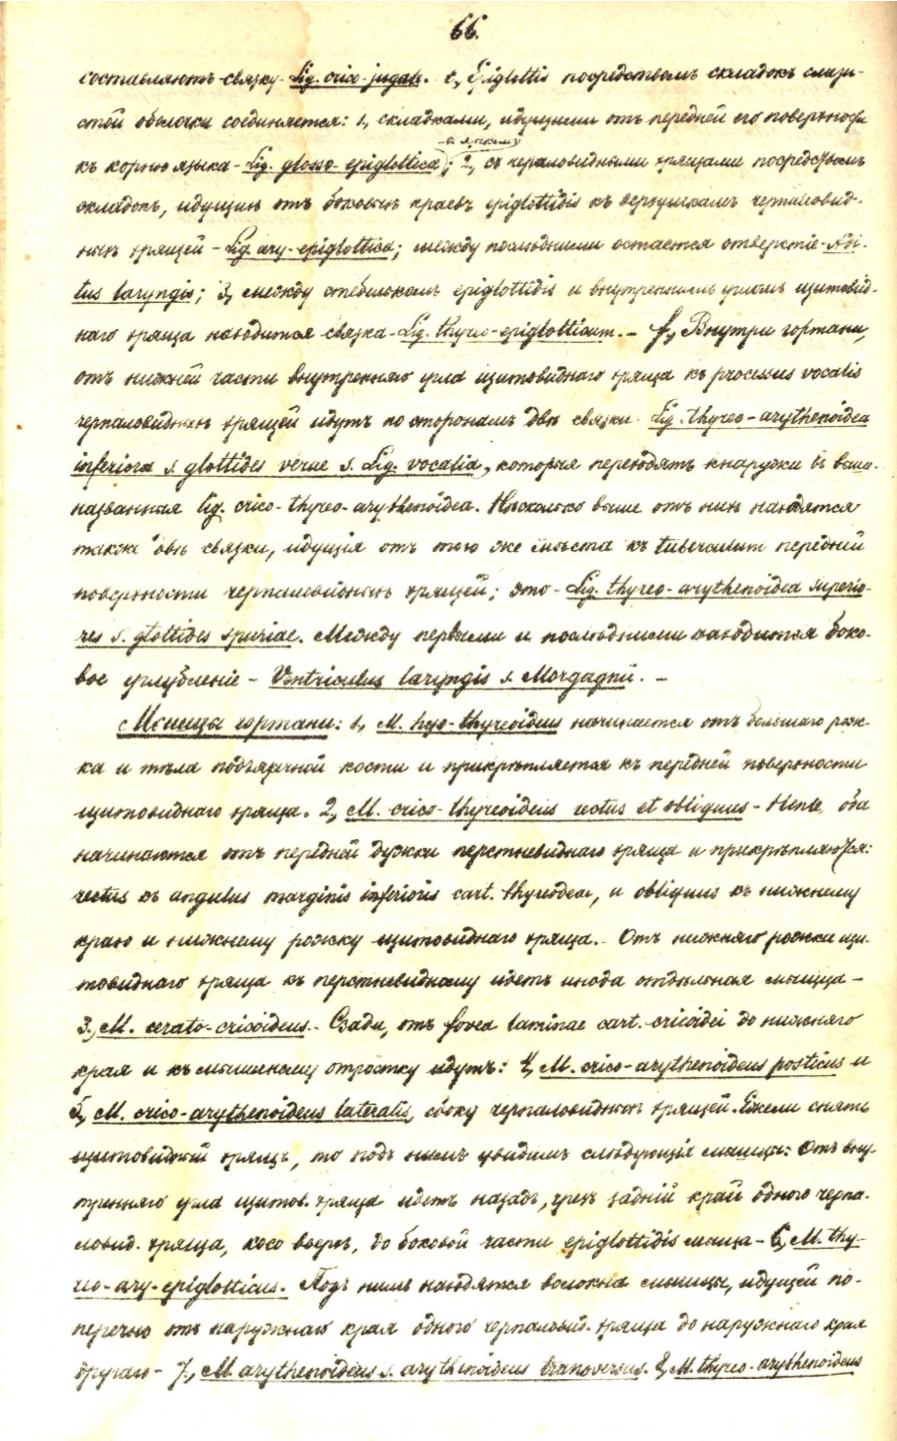 66.
составляютъ связку - Lig. crico-jugale. e, Epiglottis посредствомъ складокъ слизи-
стой оболочки соединяется: 1, складками, идущими отъ передней его поверхности
къ корню языка - Lig. glosso-epiglottica; 2, съ черпаловидными хрящами посредствомъ
складокъ, идущихъ отъ боковыхъ краевъ epiglottidis къ верхушкамъ черпаловид-
ныхъ хрящей - Lig. ary-epiglottica; между послѣдними остается отверстіе - Adi-
tus laryngis; 3, между стебелькомъ epiglottidis и внутреннимъ угломъ щитовид-
наго хряща находится связка - Lig. thyreo-epiglotticum. - f, Внутри гортани,
отъ нижней части внутренняго угла щитовиднаго хряща къ processus vocalis
черпаловидныхъ хрящей идутъ по сторонамъ двѣ связки - Lig. thyreo-arythenoidea
inferiora s. glottides verae s. Lig. vocalia, которыя переходятъ кнаружи въ выше-
названныя lig. crico-thyreo-arythenoidea. Нѣсколько выше отъ нихъ находятся
также двѣ связки, идущія отъ того же мѣста къ tuberculum передней
поверхности черпаловидныхъ хрящей; это - Lig. thyreo-arythenoidea superio-
res s. glottides spuriae. Между первыми и послѣдними находится боко-
вое углубленіе - Ventriculus laryngis s. Morgagnii. -
Мышцы гортани: 1, M. hyo-thyreoideus начинается отъ большаго рож-
ка и тѣла подъязычной кости и прикрѣпляется къ передней поверхности
щитовиднаго хряща. 2, M. crico-thyreoideus rectus et obliquus - Henle, оба
начинаются отъ передней дужки перстневиднаго хряща и прикрѣпляются:
rectus къ angulus marginis inferioris cart. thyreoideae, и obliquus къ нижнему
краю и нижнему рожку щитовиднаго хряща. - Отъ нижняго рожка щи-
товиднаго хряща къ перстневидному идетъ иногда отдѣльная мышца -
3, M. cerato-cricoideus. - Сзади, отъ fovea laminae cart. cricoidei до нижняго
края и къ мышечному отростку идутъ: 4, M. crico-arythenoideus posticus и
5, M. crico-arythenoideus lateralis, сбоку черпаловидныхъ хрящей. Ежели снять
щитовидный хрящъ, то подъ нимъ увидимъ слѣдующія мышцы: Отъ вну-
тренняго угла щитов. хряща идетъ назадъ, чрезъ задній край одного черпа-
ловид. хряща, косо вверхъ, до боковой части epiglottidis мышца - 6, M. thy-
reo-ary-epiglotticus. Подъ нимъ находятся волокна мышцы, идущей по-
перечно отъ наружнаго края одного черпаловид. хряща до наружнаго края
другаго - 7, M. arythenoideus s. arythenoideus transversus. 8, M. thyreo-arythenoideus